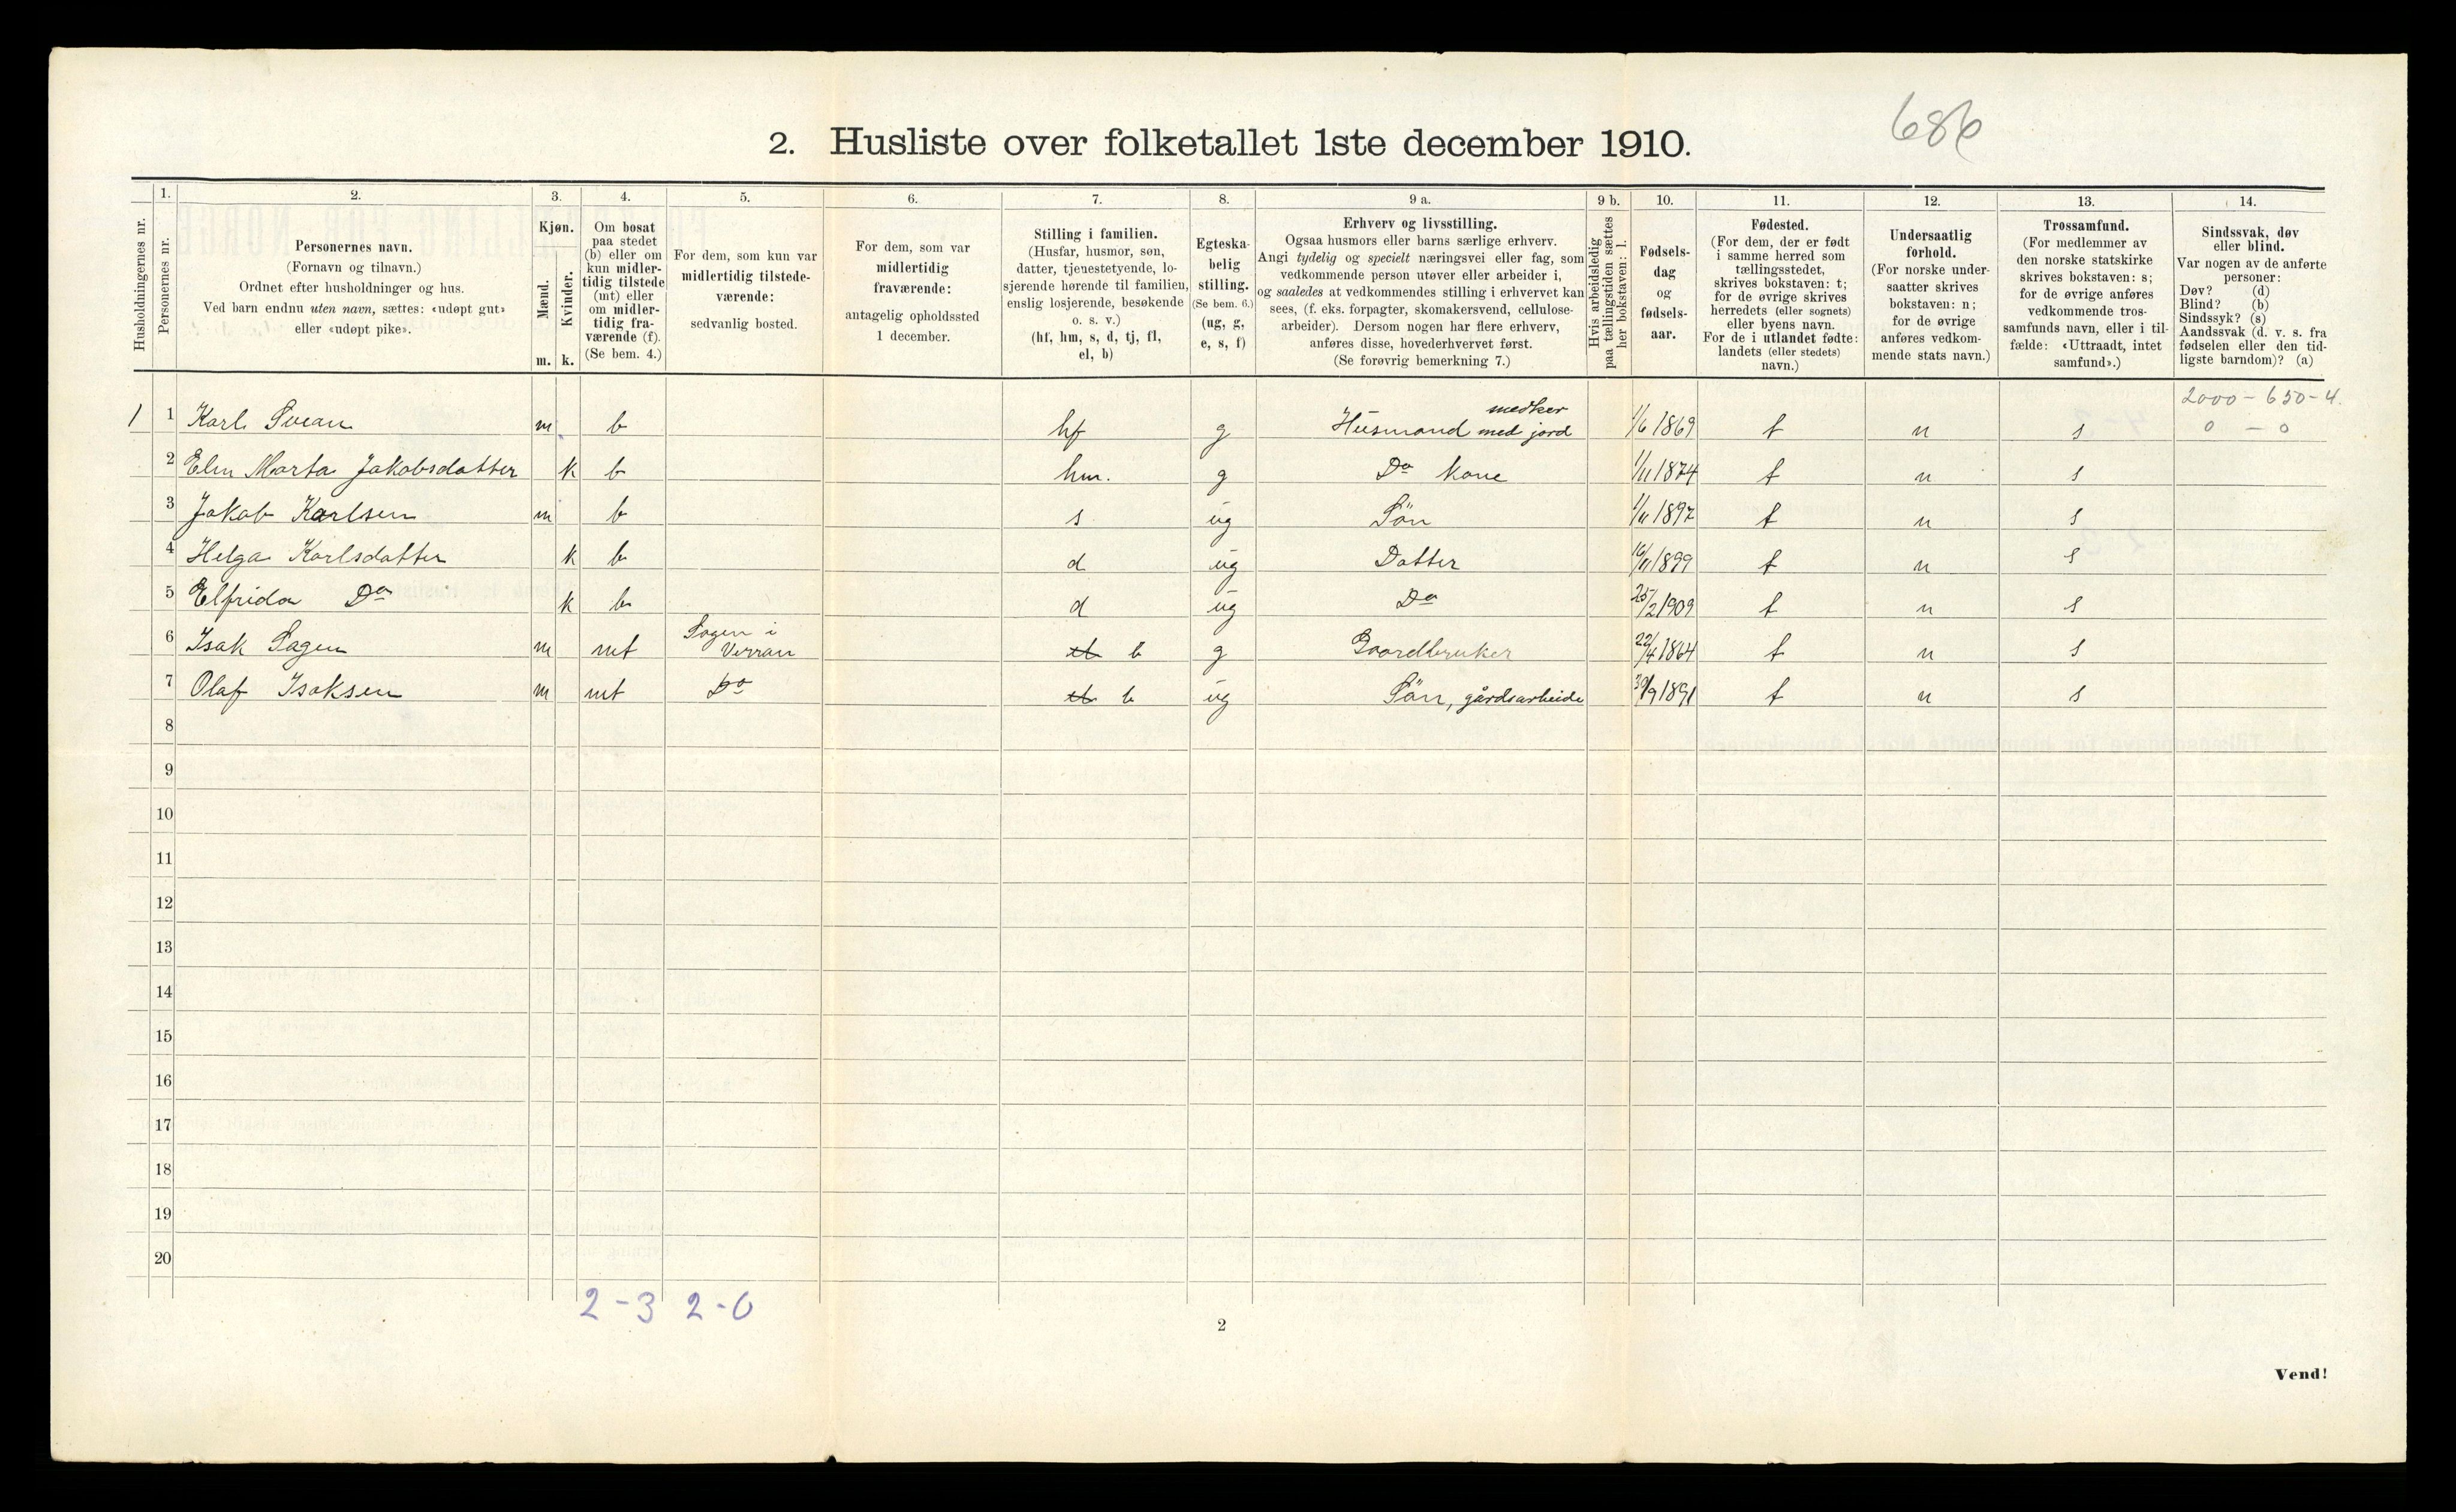 686
2. Husliste over folketallet 1ste december 1910.
Husholdningernes nr.
1.
Personernes nr.
2.
Personernes navn.
(Fornavn og tilnavn.)
Ordnet efter husholdninger og hus.
Ved barn endnu uten navn, sættes: «udøpt gut»
eller «udøpt pike».
3.
Kjøn.
Mænd.
m.
Kvinder.
k.
4.
Om bosat
paa stedet
(b) eller om
kun midler-
tidig tilstede
(mt) eller
om midler-
tidig fra-
værende (f).
(Se bem. 4.)
5.
For dem, som kun var
midlertidig tilstede-
værende:
sedvanlig bosted.
6.
For dem, som var
midlertidig
fraværende:
antagelig opholdssted
1 december.
7.
Stilling i familien.
(Husfar, husmor, søn,
datter, tjenestetyende, lo-
sjerende hørende til familien,
enslig losjerende, besøkende
o. s. v.)
(hf, hm, s, d, tj, fl,
el, b)
8.
Egteska-
belig
stilling.
(Se bem. 6.)
(ug, g,
e, s, f)
9 a.
Erhverv og livsstilling.
Ogsaa husmors eller barns særlige erhverv.
Angi tydelig og specielt næringsvei eller fag, som
vedkommende person utøver eller arbeider i,
og saaledes at vedkommendes stilling i erhvervet kan
sees, (f. eks. forpagter, skomakersvend, cellulose-
arbeider). Dersom nogen har flere erhverv,
anføres disse, hovederhvervet først.
(Se forøvrig bemerkning 7.)
9 b.
Hvis arbeidsledig
paa tællingstiden sættes
her bokstaven: l.
10.
Fødsels-
dag
og
fødsels-
aar.
11.
Fødested.
(For dem, der er født
i samme herred som
tællingsstedet,
skrives bokstaven: t;
for de øvrige skrives
herredets (eller sognets)
eller byens navn.
For de i utlandet fødte:
landets (eller stedets)
navn.)
12.
Undersaatlig
forhold.
(For norske under-
saatter skrives
bokstaven: n;
for de øvrige
anføres vedkom-
mende stats navn.)
13.
Trossamfund.
(For medlemmer av
den norske statskirke
skrives bokstaven: s;
for de øvrige anføres
vedkommende tros-
samfunds navn, eller i til-
fælde: «Uttraadt, intet
samfund».)
14.
Sindssvak, døv
eller blind.
Var nogen av de anførte
personer:
Døv? (d)
Blind? (b)
Sindssyk? (s)
Aandssvak (d. v. s. fra
fødselen eller den tid-
ligste barndom)? (a)
2000 - 650 - 4.
0 - 0
1 1 Karl Svean m b hf g Husmand med jord 1/6 1869 t n s
2 Elen Marta Jakobsdatter k b hm. g Do kone 1/11 1874 t n s
3 Jakob Karlsen m b s ug Sön 1/11 1897 t n s
4 Helga Karlsdatter k b d ug Datter 16/11 1899 t n s
5 Elfrida Do k b d ug Do 25/2 1909 t n s
6 Isak Sagen m mt Sagen i Verran b g Gaardbruker 22/4 1864 t n s
7 Olaf Isaksen m mt Do b ug Sön, gårdsarbeide 30/9 1891 t n s
8
9
10
11
12
13
14
15
16
17
18
19
20
2 - 3 2 - 0
2
Vend!